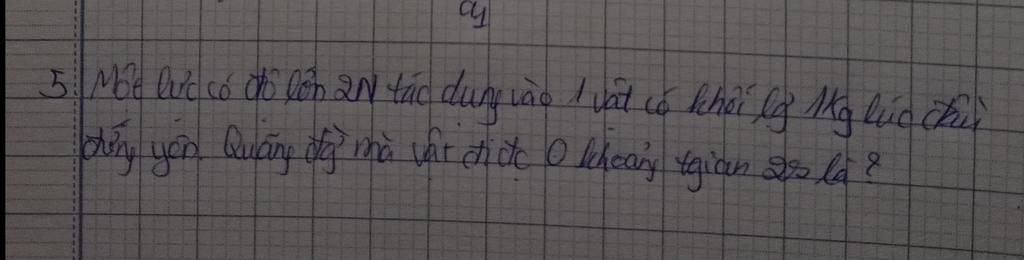 5. Một lực có độ lớn 2N tác dụng vào 1 vật có khối lg 1Kg lúc đầu
đứng yên. Quãng đg mà vật đi đc O khoảng tgian 2s là?